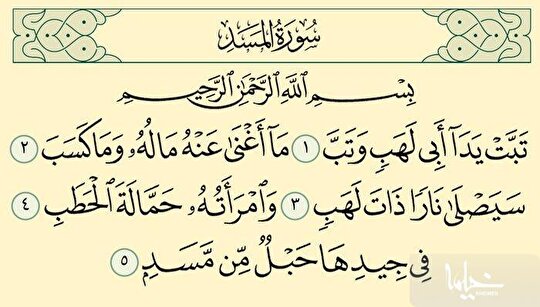 سُورَةُ المَسَدِ
بِسْمِ ٱللَّهِ ٱلرَّحْمَٰنِ ٱلرَّحِيمِ
تَبَّتْ يَدَآ أَبِى لَهَبٍ وَتَبَّ ١ مَآ أَغْنَىٰ عَنْهُ مَالُهُۥ وَمَا كَسَبَ ٢
سَيَصْلَىٰ نَارًا ذَاتَ لَهَبٍ ٣ وَٱمْرَأَتُهُۥ حَمَّالَةَ ٱلْحَطَبِ ٤
فِى جِيدِهَا حَبْلٌ مِّن مَّسَدٍ ٥